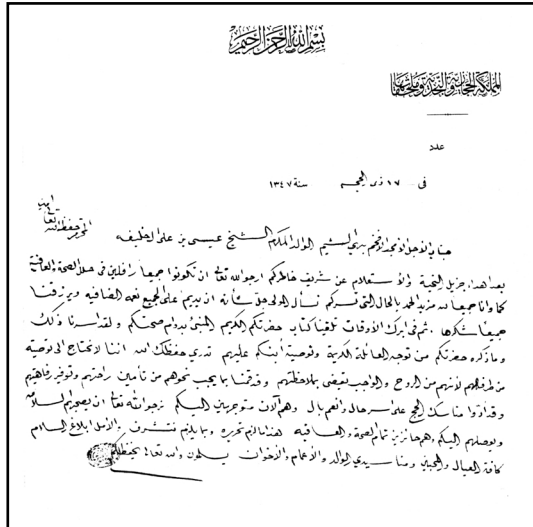 بسم الله الرحمن الرحيم
المملكة الحجازية والنجدية وملحقاتها
عدد
في ١٧ ذي الحجه سنة ١٣٤٧
جناب الأجل الأمجد الأفخم بهي الشيم الوالد المكرم الشيخ عيسى بن علي الخليفه المحترم حفظه الله تعالى
بعد اهداء جزيل التحية والاستعلام عن شريف خاطركم ارجو الله تعالى ان تكونوا جميعا رافلين في حلل الصحة والعافية
كما وانا جميعا لله مزيد الحمد بالحال التي تسركم نسأل المولى جل شأنه ان يديم على الجميع نعمه الضافيه ويرزقنا
جميعا شكرها ثم في ابرك الأوقات تلقينا كتاب حضرتكم الكريم المنبئ بدوام صحتكم ولقد اسرنا ذلك
وما ذكره حضرتكم من توجه العائلة الكريمة وتوصية ابنكم عليهم تدري حفظك الله اننا لا نحتاج الى توصية
من طرفهم لأنهم من الروح والواجب يقضي بملاحظتهم وقد قمنا بما يجب نحوهم من تأمين راحتهم وتوفير رفاهيتهم
وقد ادوا مناسك الحج على سر حال وانعم بال وهم الآن متوجهين اليكم نرجو الله تعالى ان يصحبهم السلامه
ويوصلهم اليكم وهم حائزين تمام الصحة والعافيه هذا ما لزم تحريره وبما يلزم نتشرف والأمل ابلاغ السلام
كافة العيال والمحبين ومنا سيدي الوالد والأعمام والأخوان يسلمون والله تعالى يحفظكم